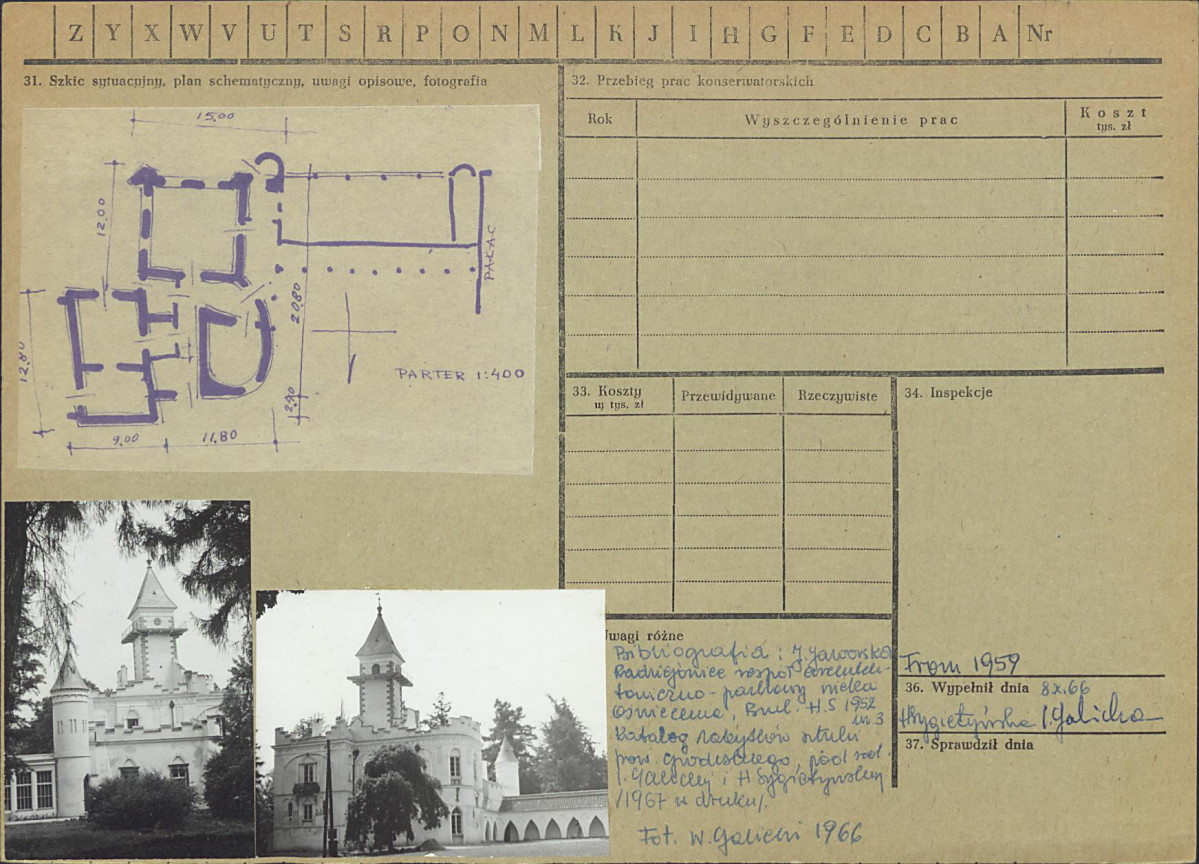 Z Y X W V U T S R P O N M L K J I H G F E D C B A Nr
31. Szkic sytuacyjny, plan schematyczny, uwagi opisowe, fotografia
15,00
12,00
PAŁAC
12,80
20,80
PARTER 1:400
2,40
9,00
11,80
32. Przebieg prac konserwatorskich
Rok
Wyszczególnienie prac
Koszt
tys. zł
33. Koszty
w tys. zł
Przewidywane
Rzeczywiste
34. Inspekcje
Uwagi różne
Bibliografia: J. Jaworska
Radziejowice zespół architek-
toniczno-parkowy wieku
Oświecenia, Biul. H.S 1952
nr 3
Katalog zabytków sztuki
pow. grodziskiego, pod red.
I. Galickiej i H Sygietyńskiej
/1967 w druku/.
Fot. W. Galicki 1966
From 1959
36. Wypełnił dnia 8 x. 66
HSygietyńska I. Galicka
37. Sprawdził dnia